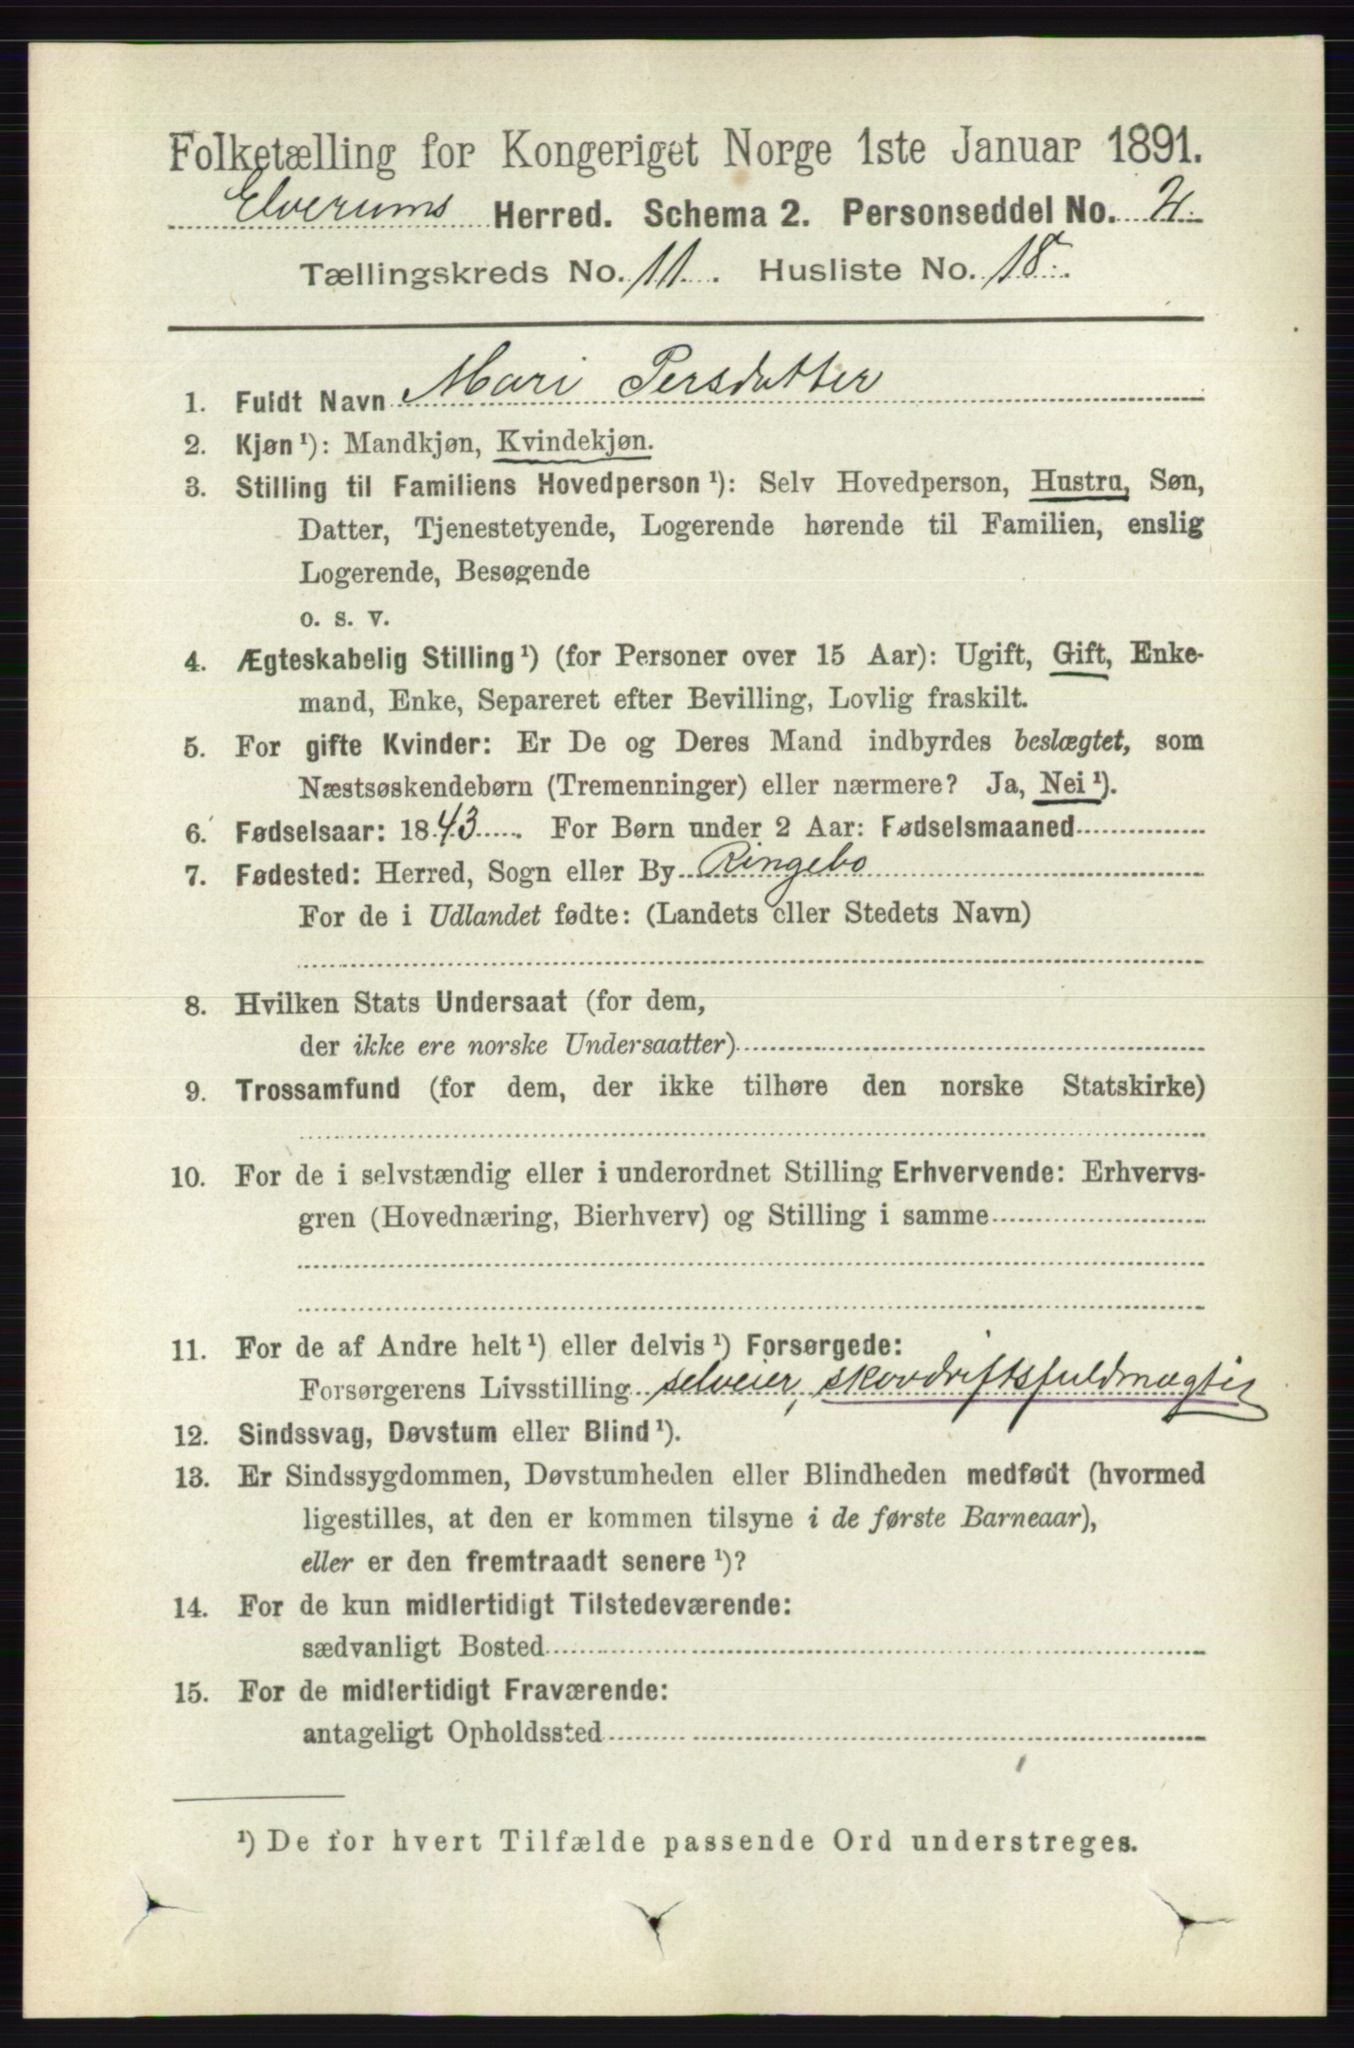 Folketælling for Kongeriget Norge 1ste Januar 1891.
Elverums Herred. Schema 2. Personseddel No. 2.
Tællingskreds No. 11. Husliste No. 18.
1. Fuldt Navn Mari Persdatter
2. Kjøn¹): Mandkjøn, Kvindekjøn.
3. Stilling til Familiens Hovedperson¹): Selv Hovedperson, Hustru, Søn,
Datter, Tjenestetyende, Logerende hørende til Familien, enslig
Logerende, Besøgende
o. s. v.
4. Ægteskabelig Stilling¹) (for Personer over 15 Aar): Ugift, Gift, Enke-
mand, Enke, Separeret efter Bevilling, Lovlig fraskilt.
5. For gifte Kvinder: Er De og Deres Mand indbyrdes beslægtet, som
Næstsøskendebørn (Tremenninger) eller nærmere? Ja, Nei¹).
6. Fødselsaar: 1843. For Børn under 2 Aar: Fødselsmaaned
7. Fødested: Herred, Sogn eller By Ringebo
For de i Udlandet fødte: (Landets eller Stedets Navn)
8. Hvilken Stats Undersaat (for dem,
der ikke ere norske Undersaatter)
9. Trossamfund (for dem, der ikke tilhøre den norske Statskirke)
10. For de i selvstændig eller i underordnet Stilling Erhvervende: Erhvervs-
gren (Hovednæring, Bierhverv) og Stilling i samme
11. For de af Andre helt¹) eller delvis¹) Forsørgede:
Forsørgerens Livsstilling selveier, skovdriftsfuldmægtig
12. Sindssvag, Døvstum eller Blind¹).
13. Er Sindssygdommen, Døvstumheden eller Blindheden medfødt (hvormed
ligestilles, at den er kommen tilsyne i de første Barneaar),
eller er den fremtraadt senere¹)?
14. For de kun midlertidigt Tilstedeværende:
sædvanligt Bosted
15. For de midlertidigt Fraværende:
antageligt Opholdssted
¹) De for hvert Tilfælde passende Ord understreges.